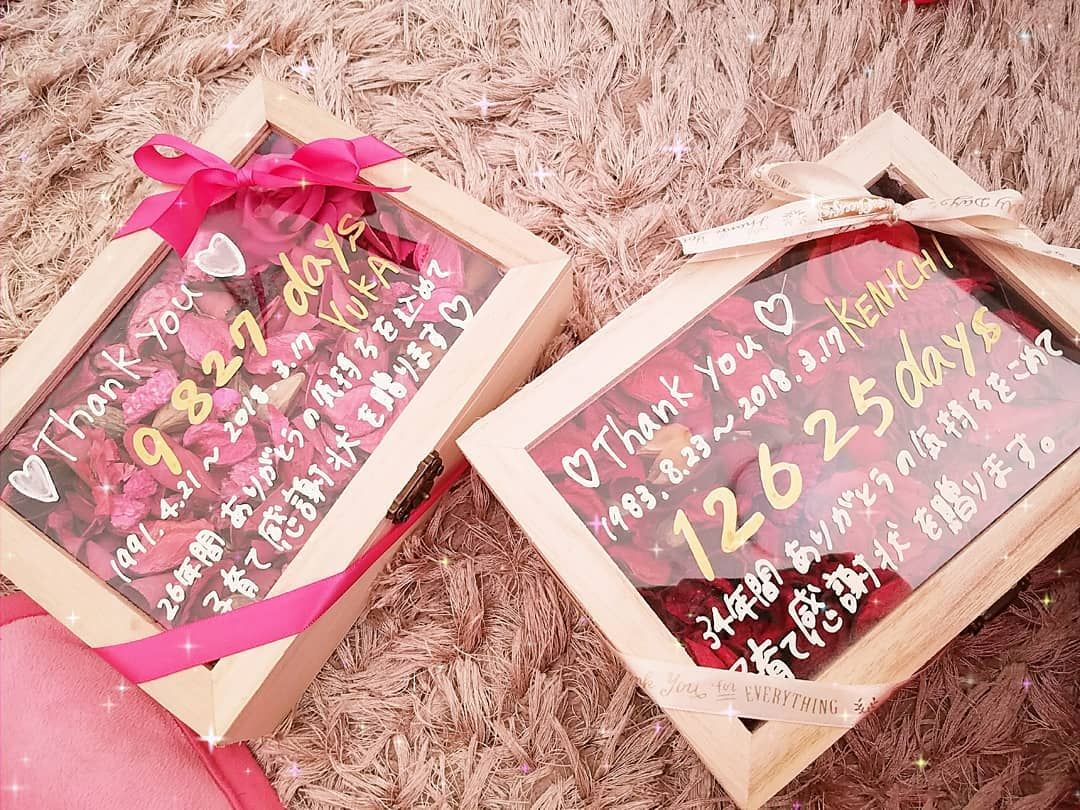 ♡Thank You♡
9827 days
YUKA
1991.4.21～2018.3.17
26年間ありがとうの気持ちを込めて
子育て感謝状を贈ります♡
♡Thank You♡
KENICHI
1983.8.23～2018.3.17
12625days
34年間ありがとうの気持ちをこめて
子育て感謝状を贈ります。
You for EVERYTHING